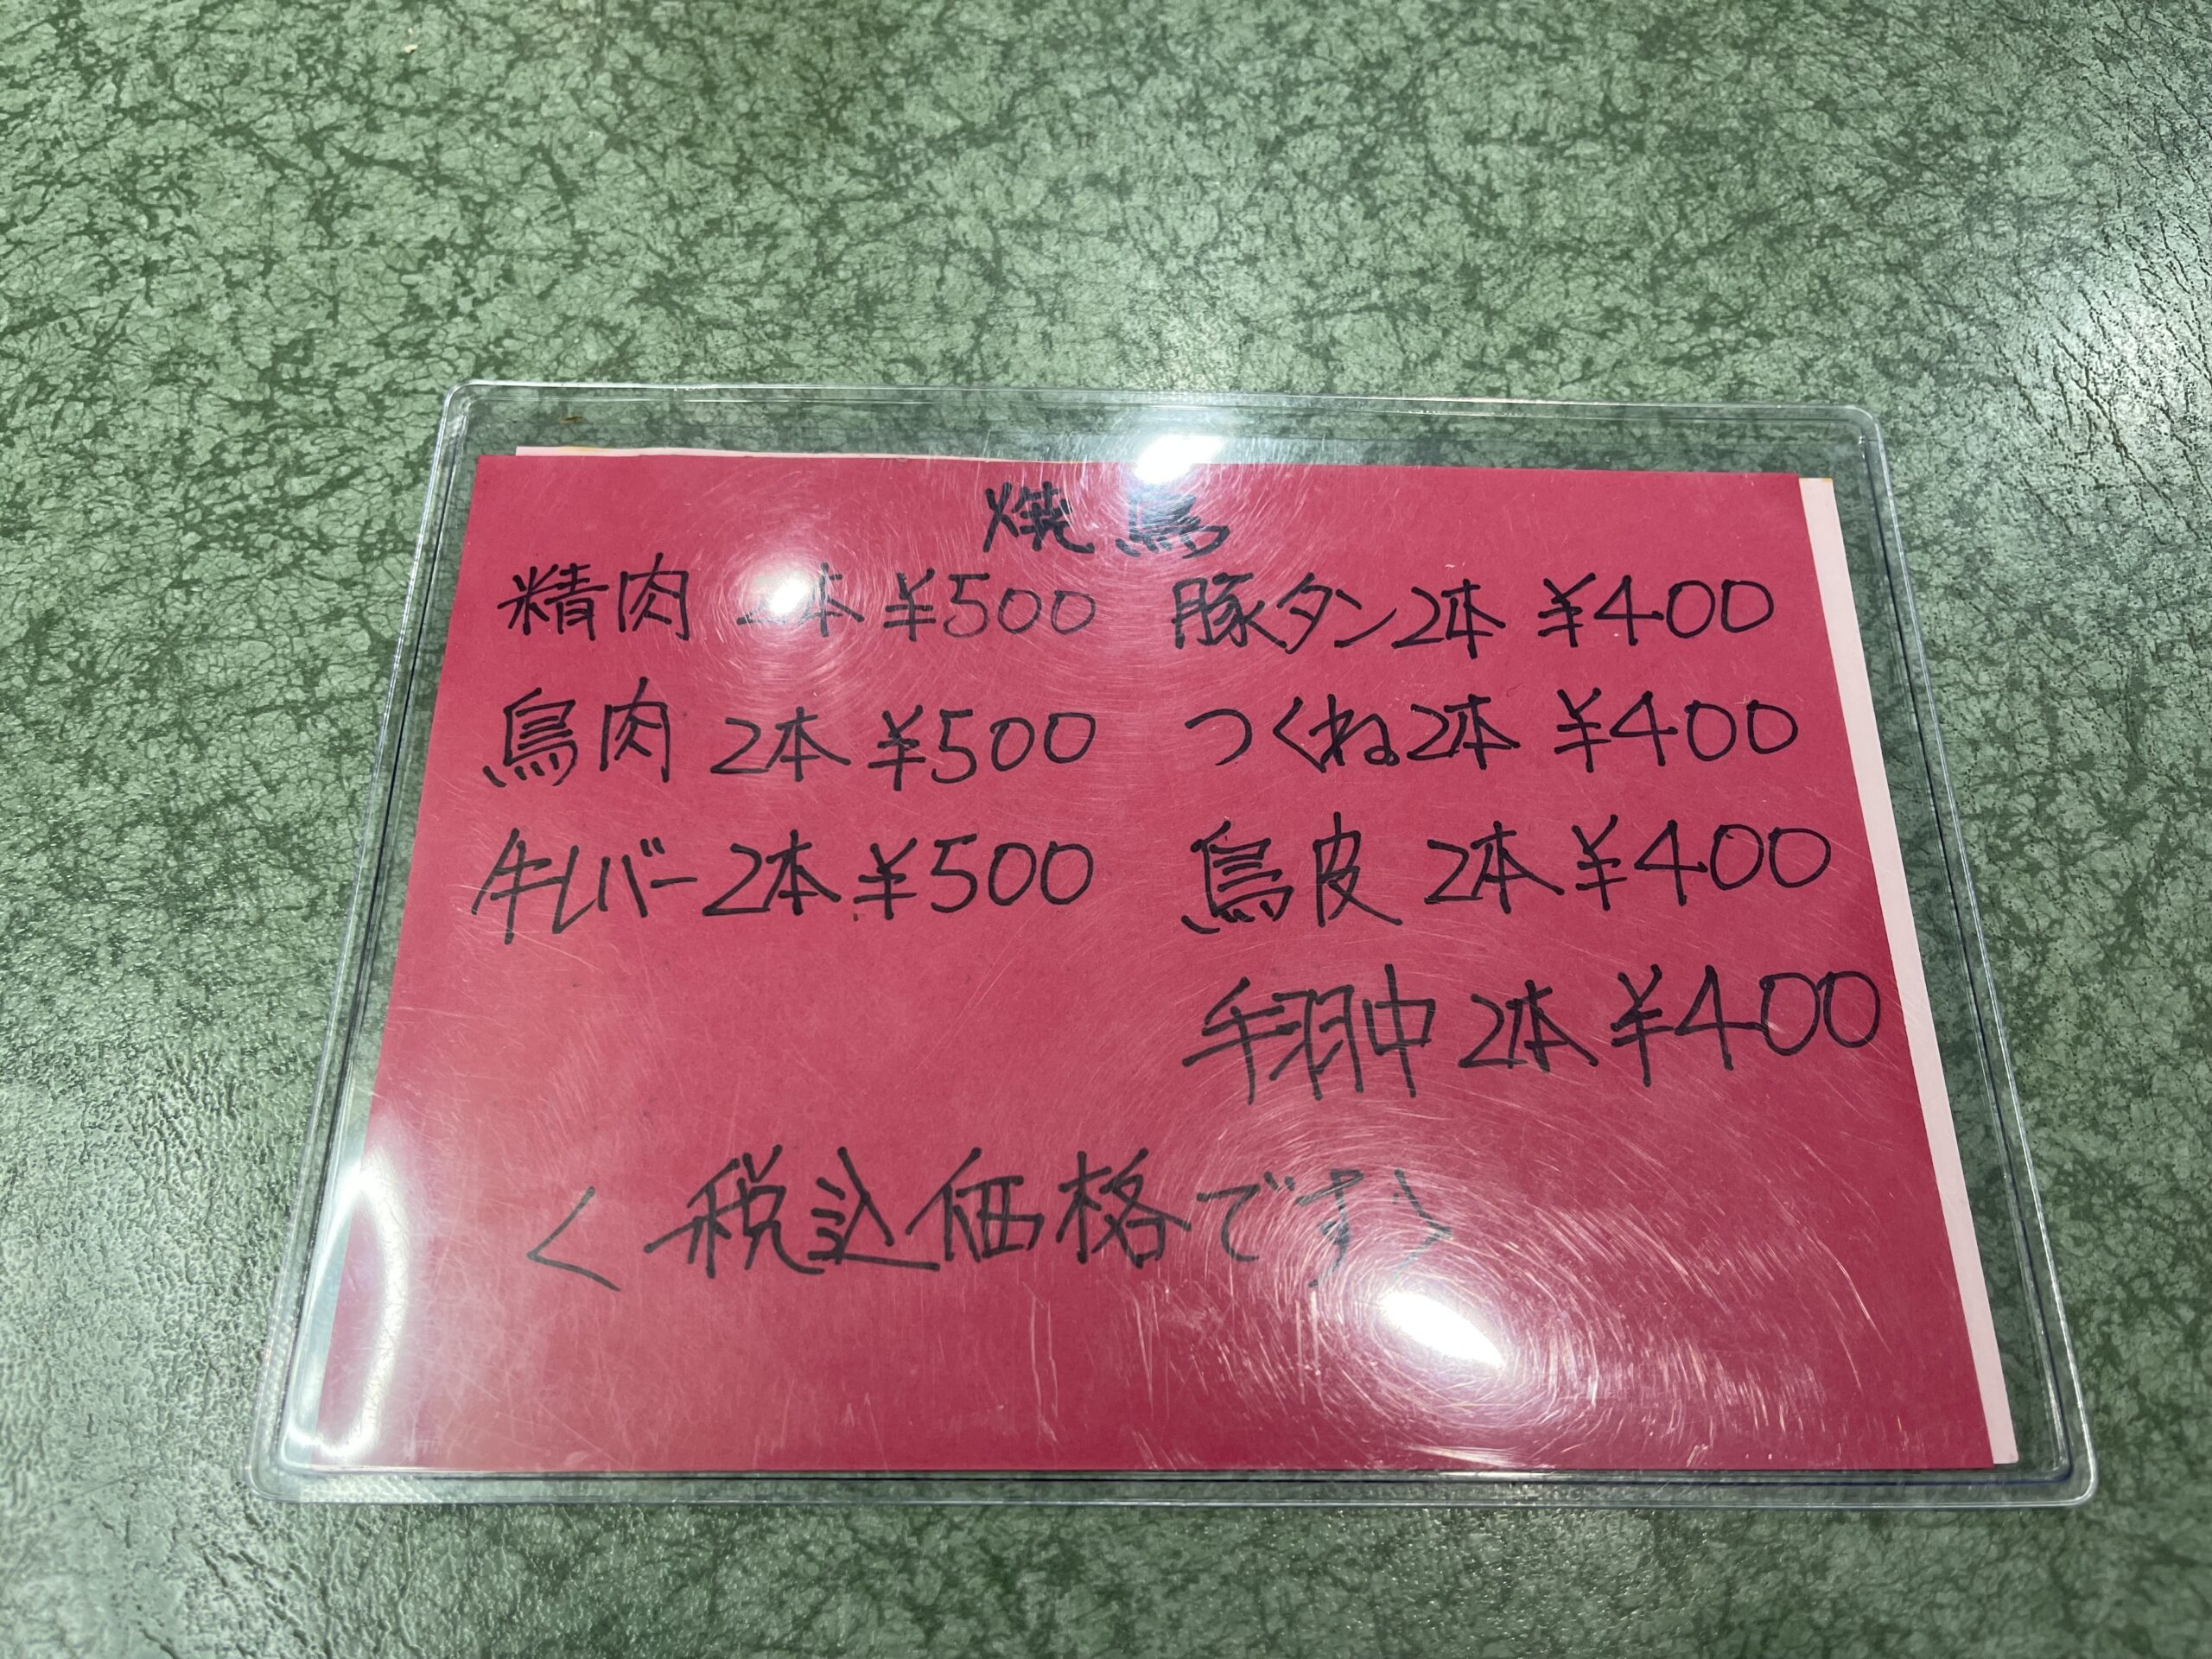 焼鳥
精肉 2本 ¥500
鳥肉 2本 ¥500
牛レバー 2本 ¥500
豚タン 2本 ¥400
つくね 2本 ¥400
鳥皮 2本 ¥400
手羽中 2本 ¥400
<税込価格です>